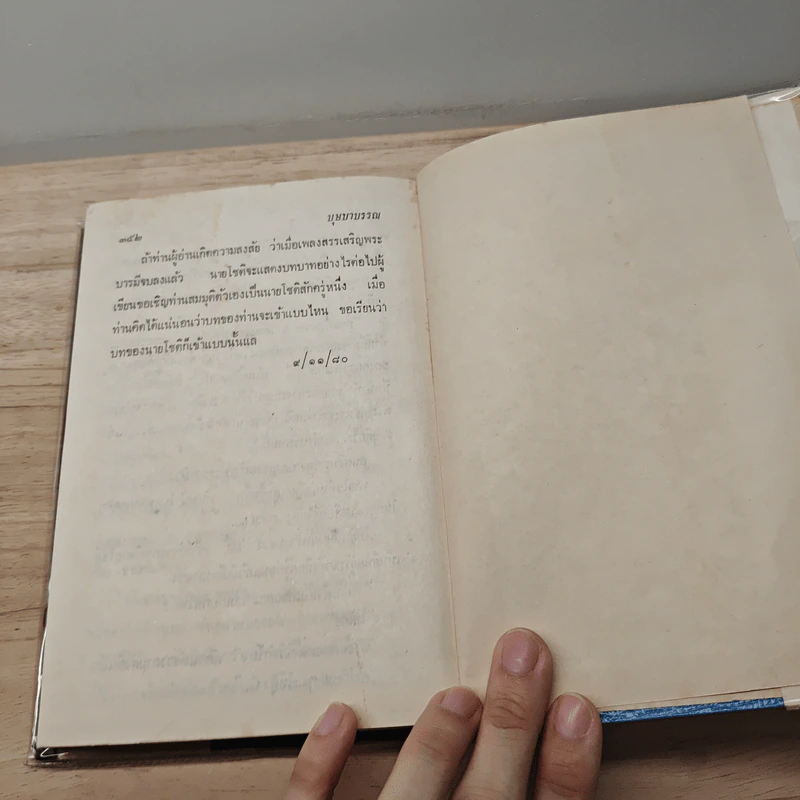 ๓๔๒
บุษบาบรรณ
ถ้าท่านผู้อ่านเกิดความสงสัย ว่าเมื่อเพลงสรรเสริญพระ
บารมีจบลงแล้ว นายโชติจะแสดงบทบาทอย่างไรต่อไปผู้
เขียนขอเชิญท่านสมมุติตัวเองเป็นนายโชติสักครู่หนึ่ง เมื่อ
ท่านคิดได้แน่นอนว่าบทของท่านจะเข้าแบบไหน ขอเรียนว่า
บทของนายโชติก็เข้าแบบนั้นแล
๙/๑๑/๘๐